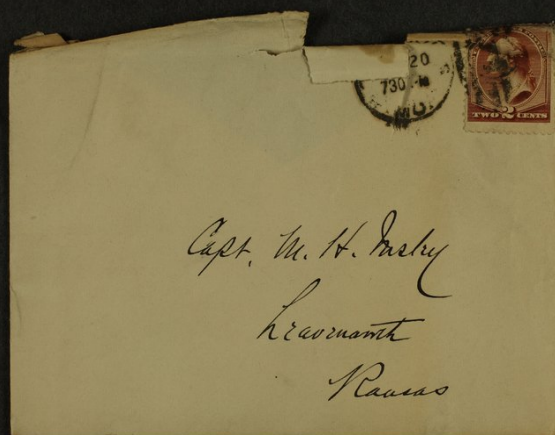 20
730
MO.
TWO 2 CENTS
Capt. M. H. Insley
Leavenworth
Kansas